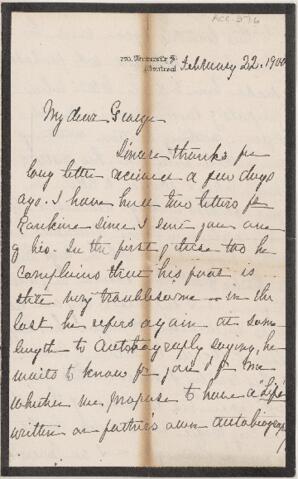 ACC-376
Montreal
February 22. 1900
My dear George
Sincere thanks for
long letter received a few days
ago. I have had two letters fr
Rankine since I sent you one
of his. In the first of these two he
complains that his foot is
still very troublesome - in the
last he refers again at some
length to Autobiography saying, he
wants to know for you & for me
whether we propose to have a "Life"
written or father's own autobiography